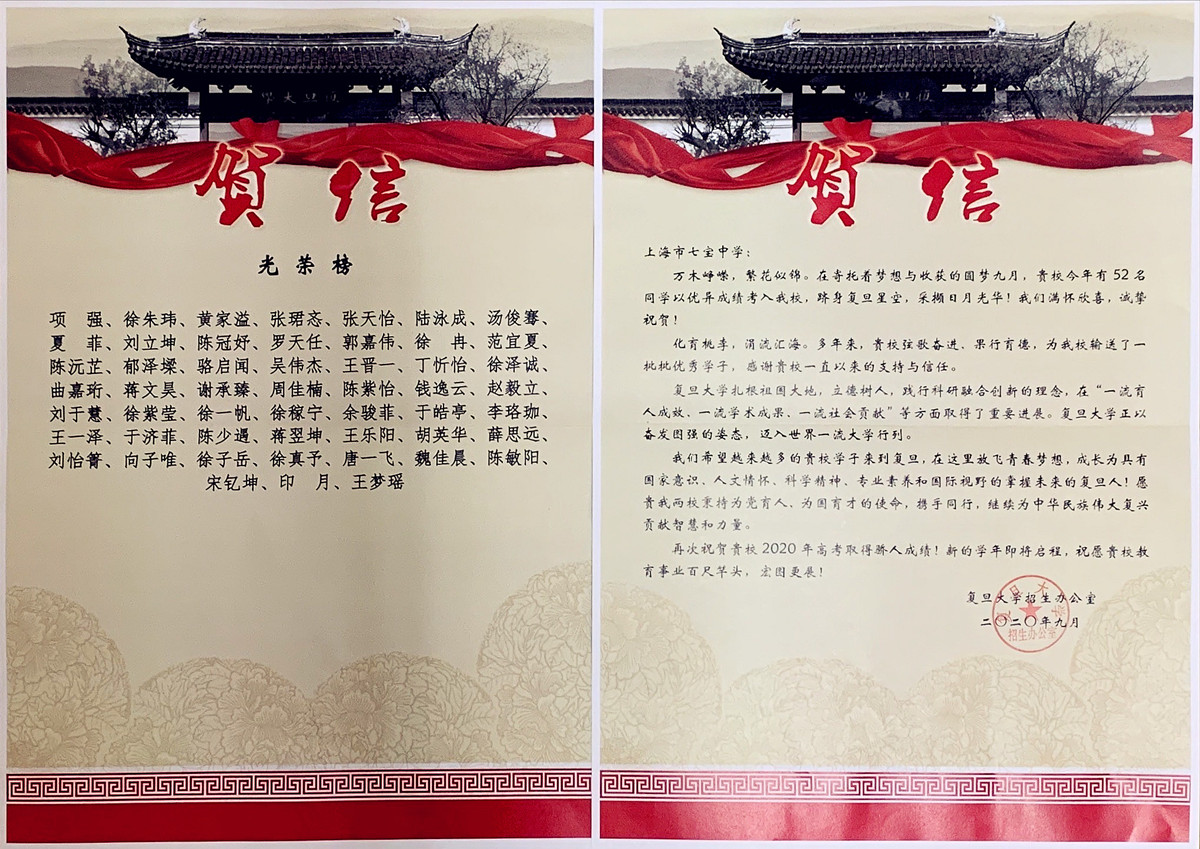 贺信
光荣榜
项 强、徐朱玮、黄家溢、张珺忞、张天怡、陆泳成、汤俊骞、
夏 菲、刘立坤、陈冠妤、罗天任、郭嘉伟、徐 冉、范宜夏、
陈沅芷、郁泽墚、骆启闻、吴伟杰、王晋一、丁忻怡、徐泽诚、
曲嘉珩、蒋文昊、谢承臻、周佳楠、陈紫怡、钱逸云、赵毅立、
刘于慧、徐紫莹、徐一帆、徐稼宁、余骏菲、于皓亭、李珞珈、
王一泽、于济菲、陈少遇、蒋翌坤、王乐阳、胡英华、薛思远、
刘怡箐、向子唯、徐子岳、徐真予、唐一飞、魏佳晨、陈敏阳、
宋钇坤、印 月、王梦瑶
贺信
上海市七宝中学：
万木峥嵘，繁花似锦。在寄托着梦想与收获的圆梦九月，贵校今年有52名
同学以优异成绩考入我校，跻身复旦星空，采撷日月光华！我们满怀欣喜，诚挚
祝贺！
化育桃李，涓流汇海。多年来，贵校弦歌奋进、果行育德，为我校输送了一
批批优秀学子，感谢贵校一直以来的支持与信任。
复旦大学扎根祖国大地，立德树人，践行科研融合创新的理念，在“一流育
人成效、一流学术成果、一流社会贡献”等方面取得了重要进展。复旦大学正以
奋发图强的姿态，迈入世界一流大学行列。
我们希望越来越多的贵校学子来到复旦，在这里放飞青春梦想，成长为具有
国家意识、人文情怀、科学精神、专业素养和国际视野的掌握未来的复旦人！愿
贵我两校秉持为党育人、为国育才的使命，携手同行，继续为中华民族伟大复兴
贡献智慧和力量。
再次祝贺贵校2020年高考取得骄人成绩！新的学年即将启程，祝愿贵校教
育事业百尺竿头，宏图更展！
复旦大学招生办公室
二〇二〇年九月
复旦大学
招生办公室